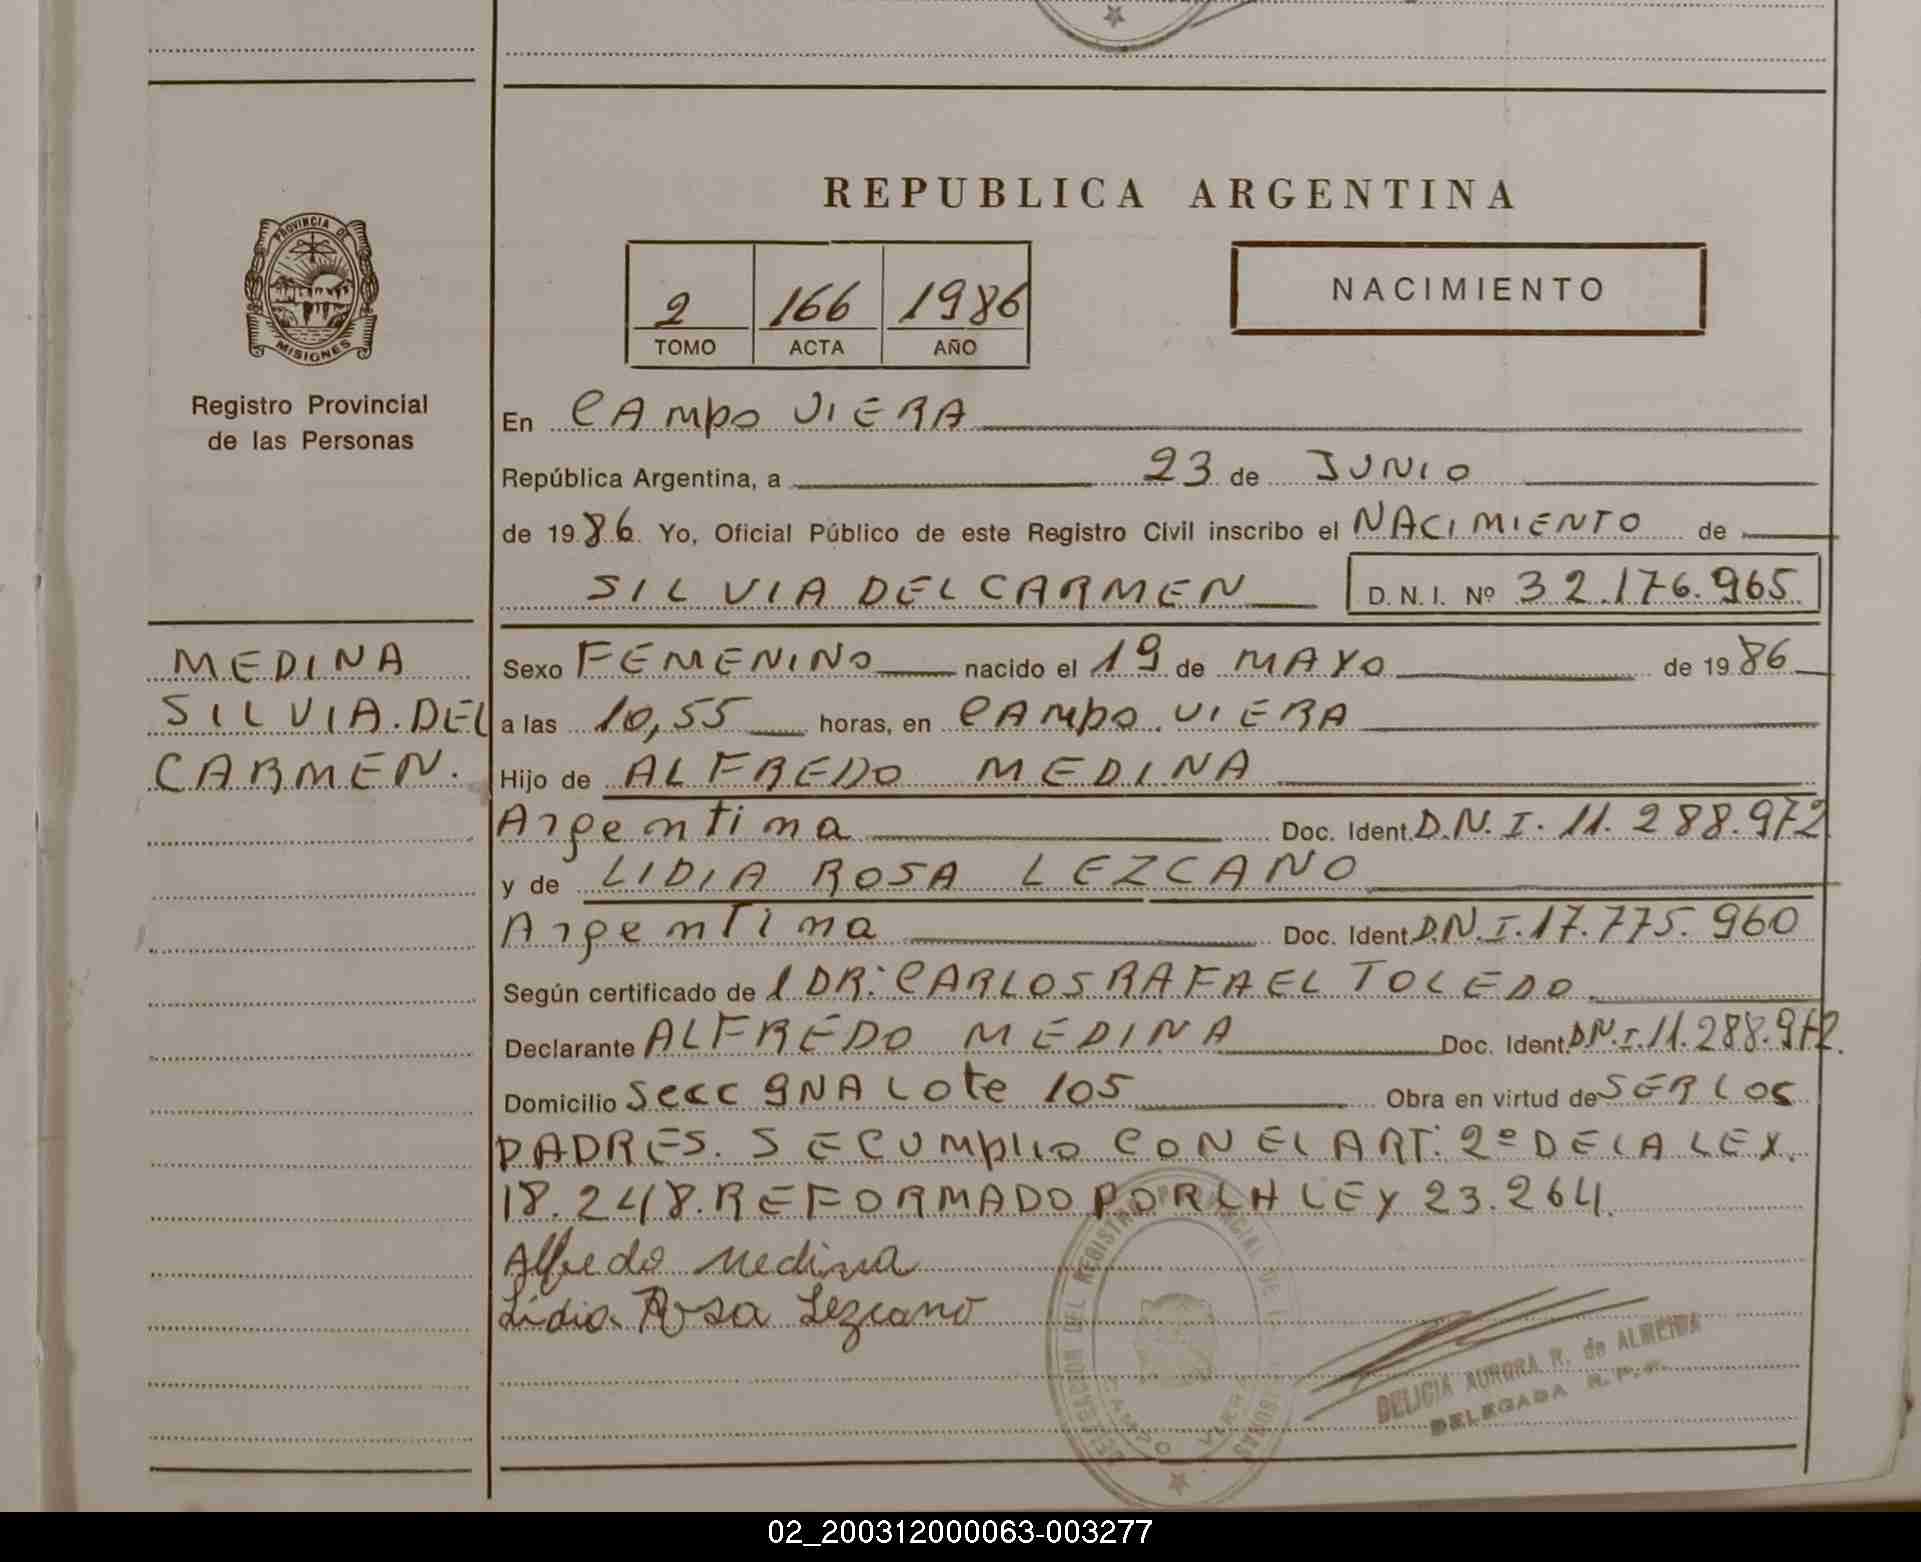 REPUBLICA ARGENTINA
PROVINCIA DE
MISIONES
Registro Provincial
de las Personas
2 166 1986
TOMO ACTA AÑO
NACIMIENTO
En CAMPO VIERA
República Argentina, a 23 de JUNIO
de 1986 Yo, Oficial Público de este Registro Civil inscribo el NACIMIENTO de
SILVIA DEL CARMEN D. N. I. Nº 32.176.965
MEDINA
SILVIA.DEL
CARMEN.
Sexo FEMENINO nacido el 19 de MAYO de 1986
a las 10,55 horas, en CAMPO VIERA
Hijo de ALFREDO MEDINA
Argentina Doc. Ident. D.N.I. 11.288.972
y de LIDIA ROSA LEZCANO
Argentina Doc. Ident. D.N.I. 17.775.960
Según certificado de l DR: CARLOS RAFAEL TOLEDO
Declarante ALFREDO MEDINA Doc. Ident. D.N.I. 11.288.972.
Domicilio Secc 9NA Lote 105 Obra en virtud de SER LOS
PADRES. SE CUMPLIO CON EL ART: 2º DE LA LEY.
18.248. REFORMADO POR LA LEY 23.264.
Alfredo Medina
Lidia Rosa Lezcano
DELEGACION DEL REGISTRO PROVINCIAL DE LAS PERSONAS
CAMPO VIERA
DELICIA AURORA R. de ALMEIDA
DELEGADA R. P. P.
02_200312000063-003277